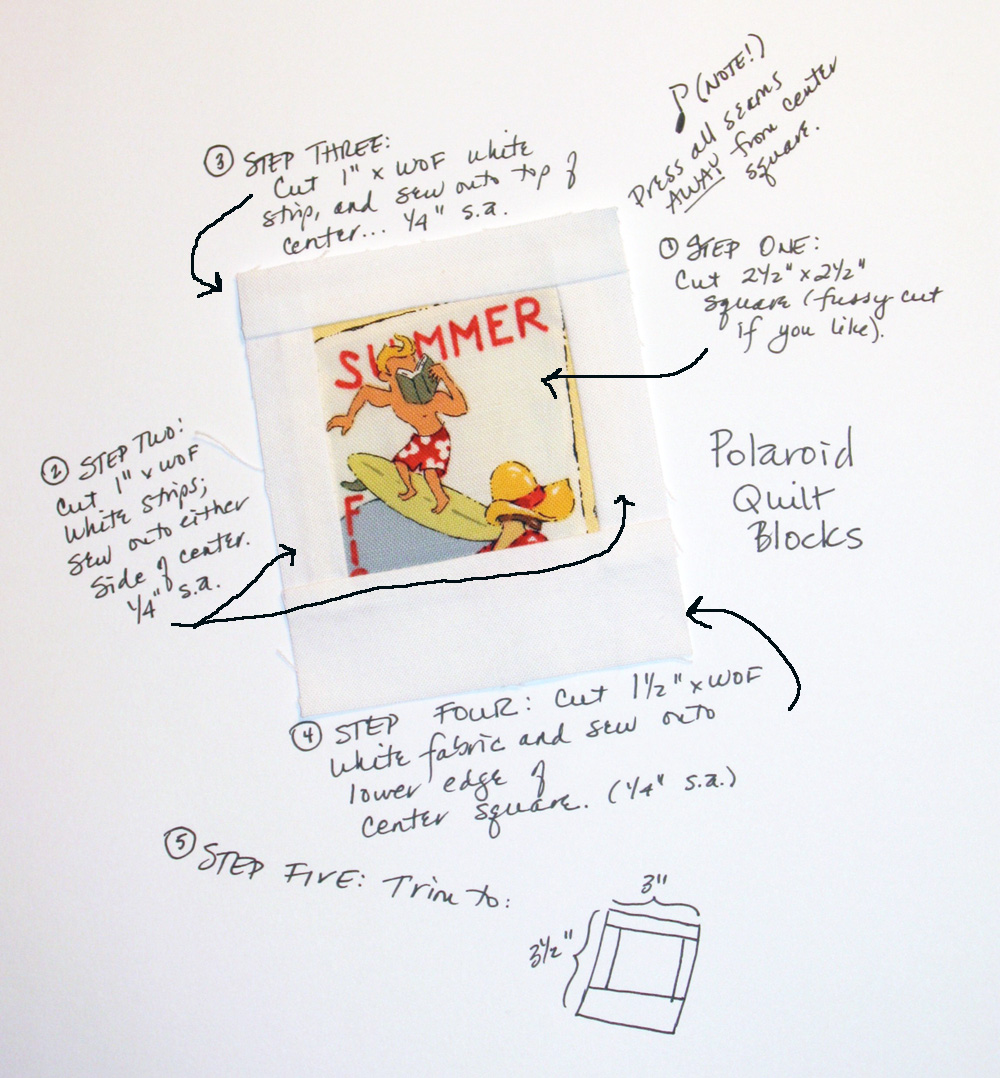 (NOTE!)
Press all seams
AWAY from center
square.
③ STEP THREE:
Cut 1" x WOF white
strip, and sew onto top of
center... 1/4" s.a.
① STEP ONE:
Cut 2 1/2" x 2 1/2"
square (fussy-cut
if you like).
SUMMER
FI
② STEP TWO:
Cut 1" x WOF
white strips;
sew onto either
side of center.
1/4" s.a.
Polaroid
Quilt
Blocks
④ STEP FOUR: Cut 1 1/2" x WOF
white fabric and sew onto
lower edge of
center square. (1/4" s.a.)
⑤ STEP FIVE: Trim to:
3"
3 1/2"